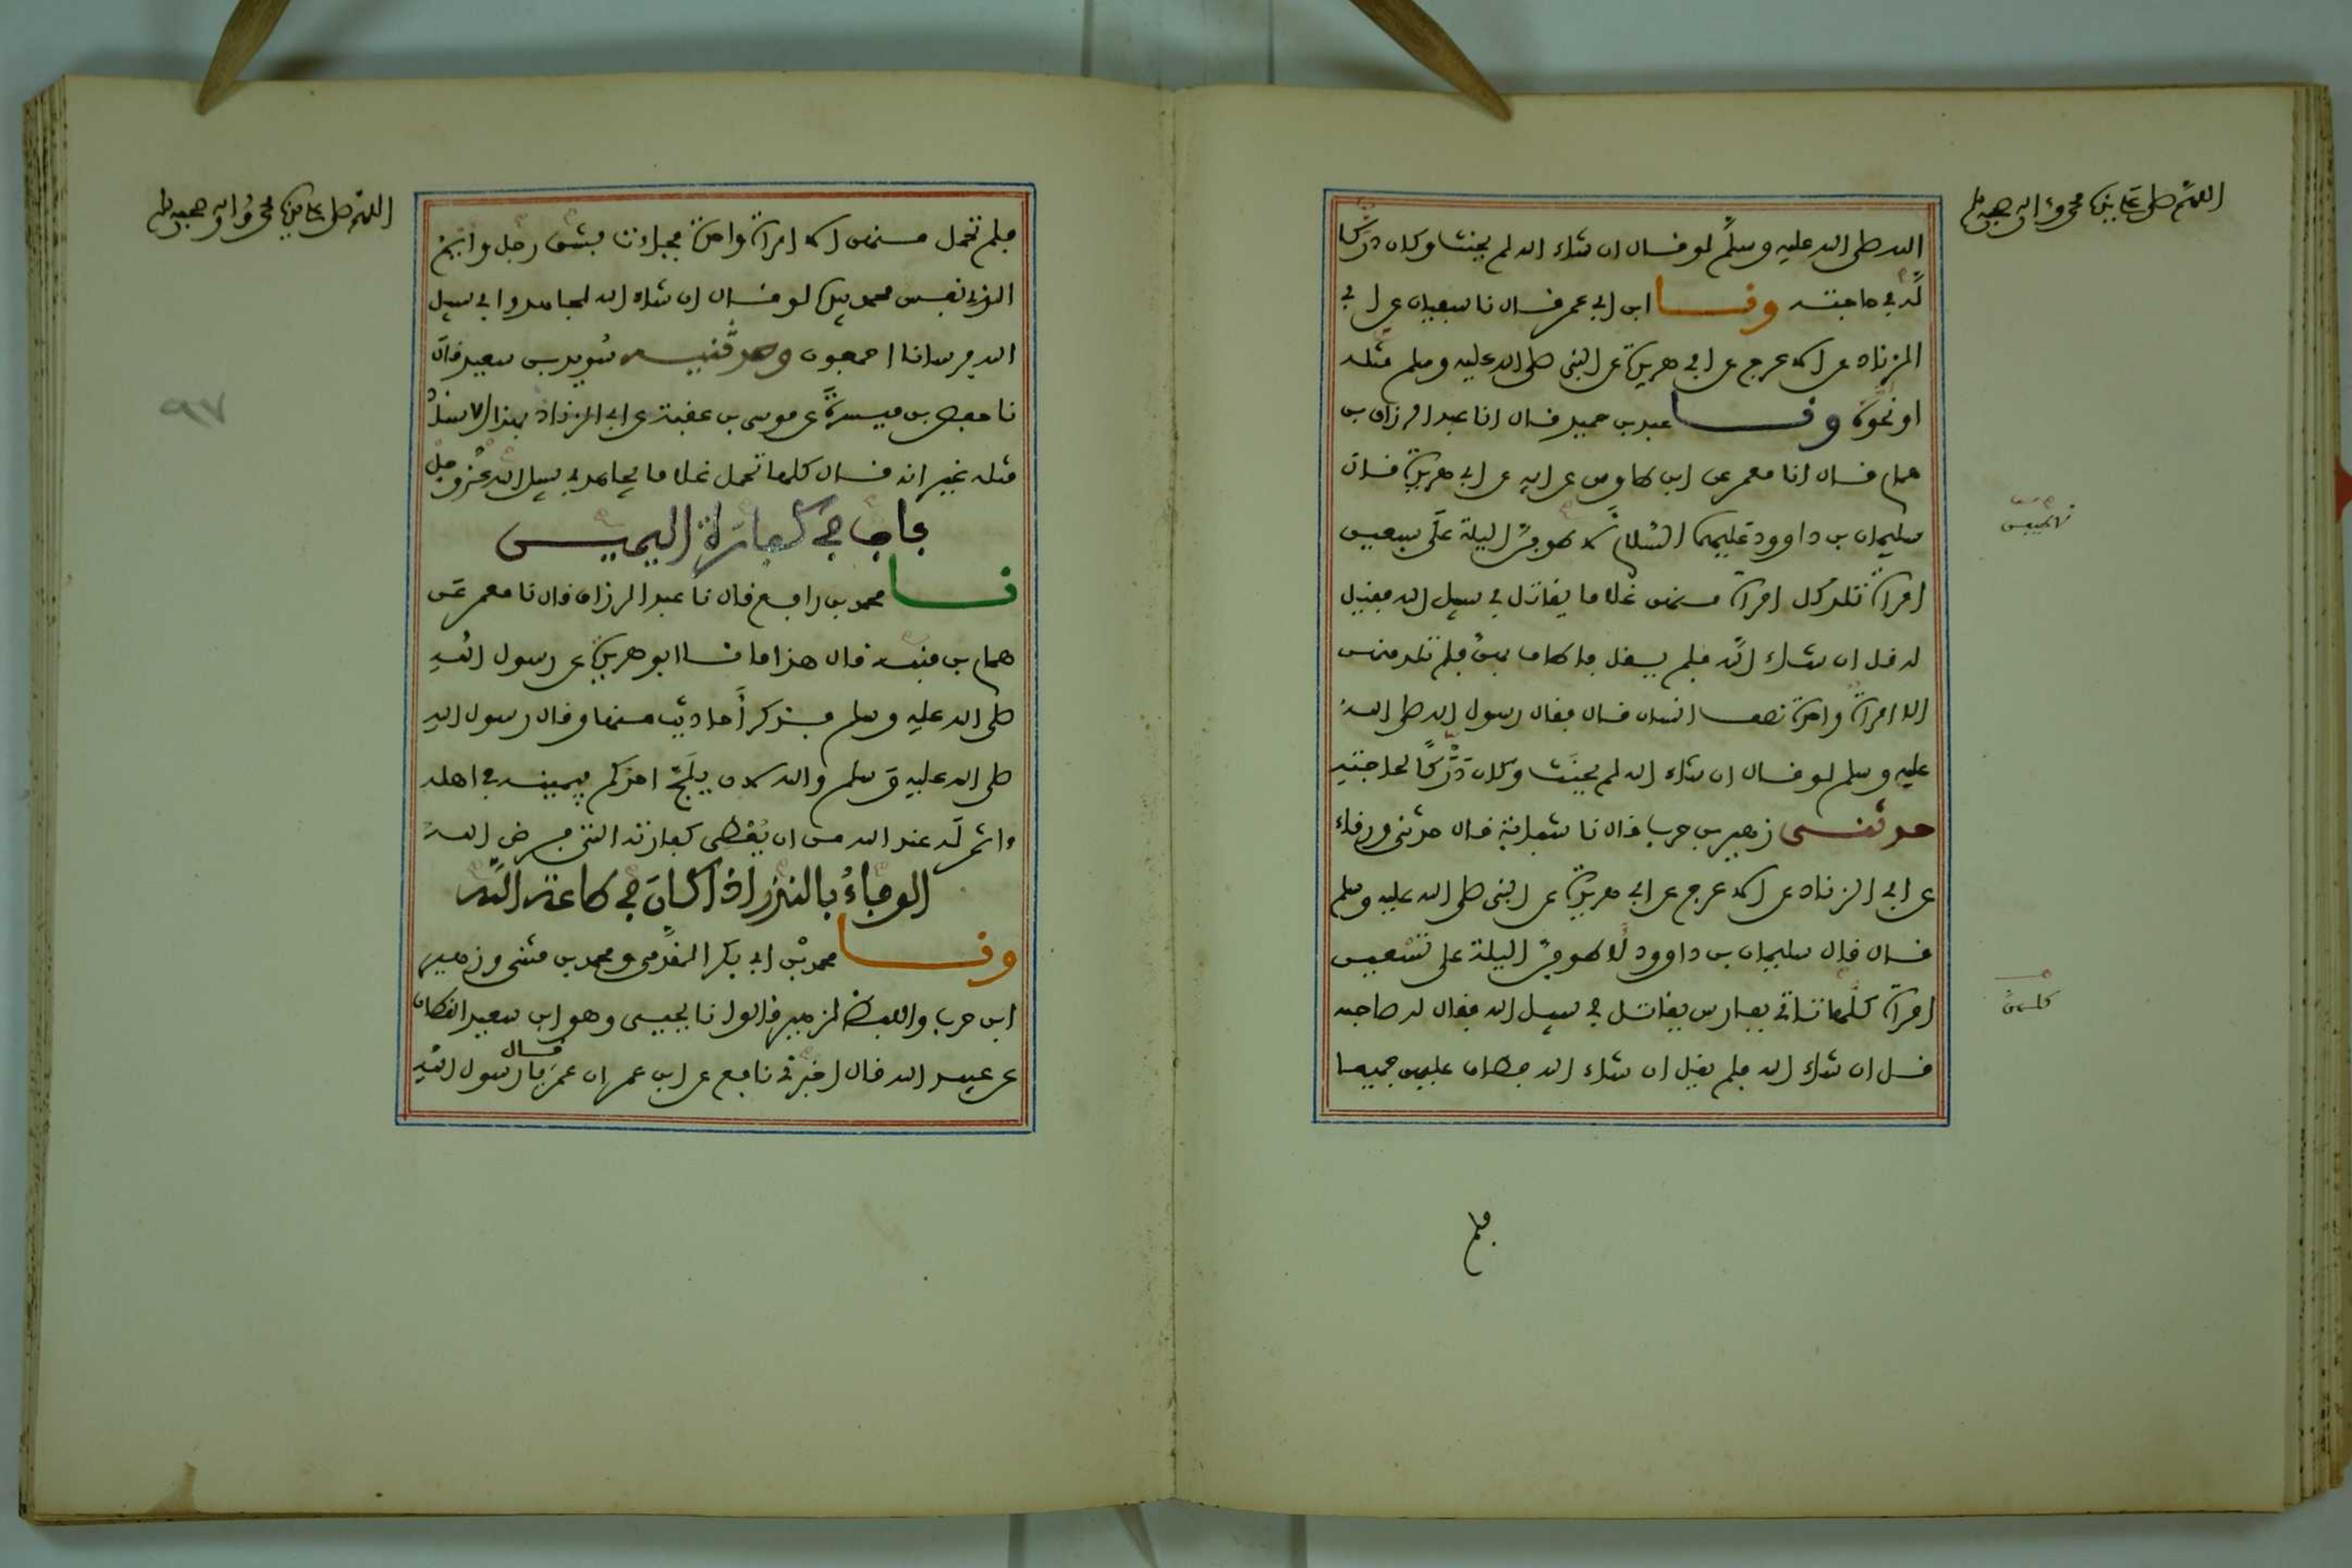 اللهم صل على نبينا محمد وآله وصحبه وسلم
الله صلى الله عليه وسلم لو قال ان شاء الله لم يحنث وكان دركا
له في حاجته ونا ابن ابي عمر قال نا سفيان عن ابي
الزناد عن الاعرج عن ابي هريرة عن النبي صلى الله عليه وسلم مثله
او نحوه ونا عبد بن حميد قال انا عبد الرزاق بن
همام قال انا معمر عن ابن طاوس عن ابيه عن ابي هريرة قال قال
سليمان بن داوود عليهما السلام لاطوفن الليلة على سبعين
امراة تلد كل امراة منهن غلاما يقاتل في سبيل الله فقيل
له قل ان شاء الله فلم يقل فاطاف بهن فلم تلد منهن
الا امراة واحدة نصف انسان قال فقال رسول الله صلى الله
عليه وسلم لو قال ان شاء الله لم يحنث وكان دركا لحاجته
حدثنى زهير بن حرب قال نا شبابة قال حدثني ورقاء
عن ابي الزناد عن الاعرج عن ابي هريرة عن النبي صلى الله عليه وسلم
قال قال سليمان بن داوود لاطوفن الليلة على تسعين
امراة كلها تاتي بفارس يقاتل في سبيل الله فقال له صاحبه
قل ان شاء الله فلم يقل ان شاء الله فطاف عليهن جميعا
فلم
اللهم صل على نبينا محمد وآله وصحبه وسلم
فلم تحمل منهن الا امراة واحدة فجاءت بشق رجل وايم
الذي نفس محمد بيده لو قال ان شاء الله لجاهدوا في سبيل
الله فرسانا اجمعون وحدثنيه سويد بن سعيد قال
نا حفص بن ميسرة عن موسى بن عقبة عن ابي الزناد بهذا الاسناد
مثله غير انه قال كلها تحمل غلاما يجاهد في سبيل الله عز وجل
باب في كفارة اليمين
نا محمد بن رافع قال نا عبد الرزاق قال نا معمر عن
همام بن منبه قال هذا ما نا ابو هريرة عن رسول الله
صلى الله عليه وسلم فذكر احاديث منها وقال رسول الله
صلى الله عليه وسلم والله لان يلج احدكم بيمينه في اهله
ءاثم له عند الله من ان يعطي كفارته التي فرض الله
الوفاء بالنذر اذا كان في طاعة الله
ونا محمد بن ابي بكر المقدمي ومحمد بن مثنى وزهير
ابن حرب واللفظ لزهير قالوا نا يحيى وهو ابن سعيد القطان
عن عبيد الله قال اخبرني نافع عن ابن عمر ان عمر قال يا رسول الله
٩٧